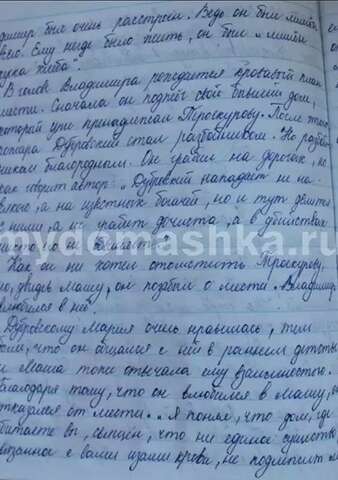 димир был очень расстроен. Ведь он был лишён
всего. Ему негде было жить, он был „лишён
куска хлеба".
В голове Владимира рождается кровавый план
мести. Сначала он поджёг свой бывший дом,
который уже принадлежал Троекурову. После этого
пожара Дубровский стал разбойником. Но разбой-
ником благородным. Он грабил на дорогах, но
как говорит автор: „ Дубровский нападает не на
всякого, а на известных богачей, но и тут делится
с ними, а не грабит дочиста, а в убийствах
никто его не обвиняет".
mydomashka.ru
Как он ни хотел отомстить Троекурову,
но, увидя Машу, он позабыл о мести. Владимир
влюбился в неё.
Дубровскому Мария очень нравилась, тем
более, что он общался с ней в раннем детстве
и Маша тоже отвечала ему взаимностью.
Благодаря тому, что он влюбился в Машу, он
отказался от мести. „ Я понял, что дом, где
обитаете вы, священ, что ни единое существо,
связанное с вами узами крови, не подлежит м